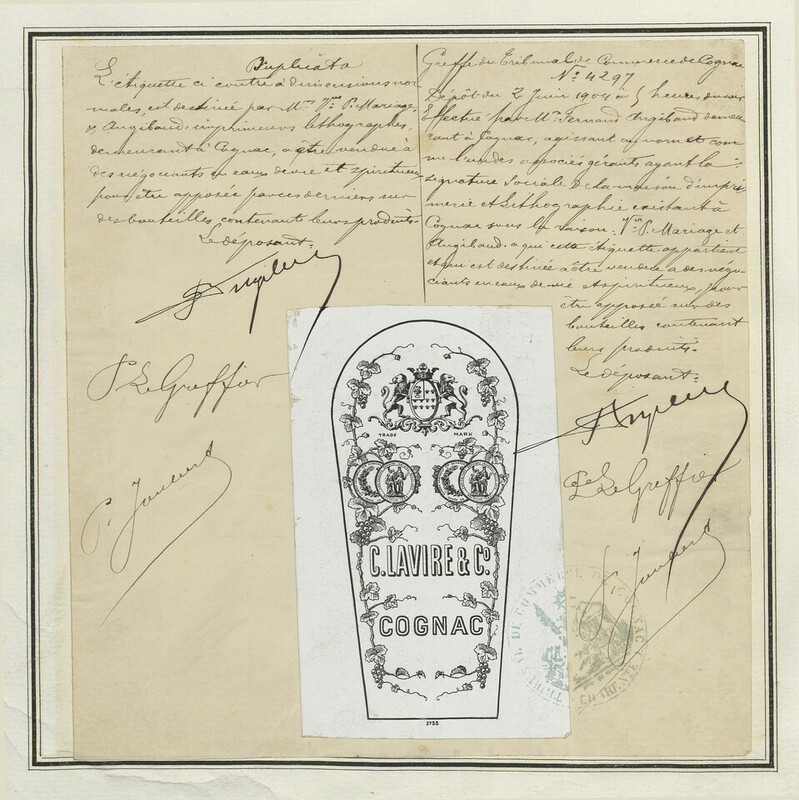 Duplicata
L'étiquette ci contre à dimensions nor
males, est destinée par Mme Vve P. Mariage,
& Augibaud, imprimeurs lithographes,
demeurant à Cognac, a être vendue à
des négociants en eaux de vie et spiritueux
pour être apposée par ces derniers sur
des bouteilles contenant leurs produits.
Le déposant:
P. Le Greffier
Greffe du Tribunal de Commerce de Cognac
No 4297
Dépôt du 2 Juin 1904 à 5 heures du soir
Effectué par Mr Fernand Augibaud demeu
rant à Cognac, agissant au nom et com
me l'un des associés gérants ayant la
signature Sociale de la maison d'impri
merie et Lithographie existant à
Cognac sous la raison: Vve P. Mariage et
Augibaud. a qui cette étiquette appartient
et qui est destinée a être vendue a des négo
ciants en eaux de vie et spiritueux, pour
être apposée sur des
bouteilles contenant
leurs produits.
Le déposant:
P. Le Greffier
TRADE MARK
C. LAVIRE & Co.
COGNAC
3755